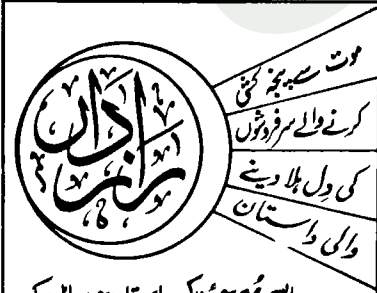 رازدار
موت سے پنجہ کشی
کرنے والے سرفروشوں
کی دِل ہلا دینے
والی داستان